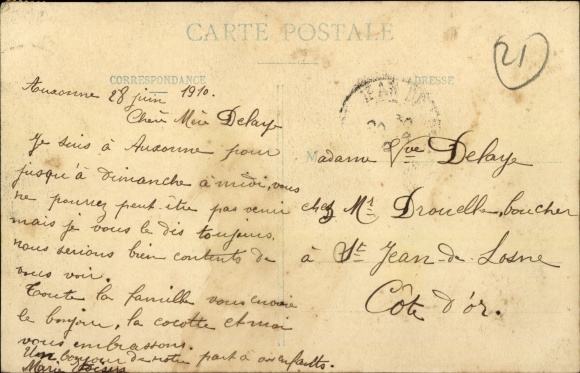 CARTE POSTALE
21
CORRESPONDANCE
ADRESSE
Auxonne 28 juin 1910.
Chère Mère Delaye
Je suis à Auxonne pour
jusqu'à Dimanche à midi, vous
ne pourrez peut-être pas venir
mais je vous le dis toujours.
nous serions bien contents de
vous voir.
Toute la famille vous envoie
le bonjour, la cocotte et moi
vous embrassons.
Un bonjour de notre part à vos enfants.
Marie
JEAN
Madame Vve Delaye
chez Mr Drouelle, boucher
à St Jean-de-Losne
Côte d'or.